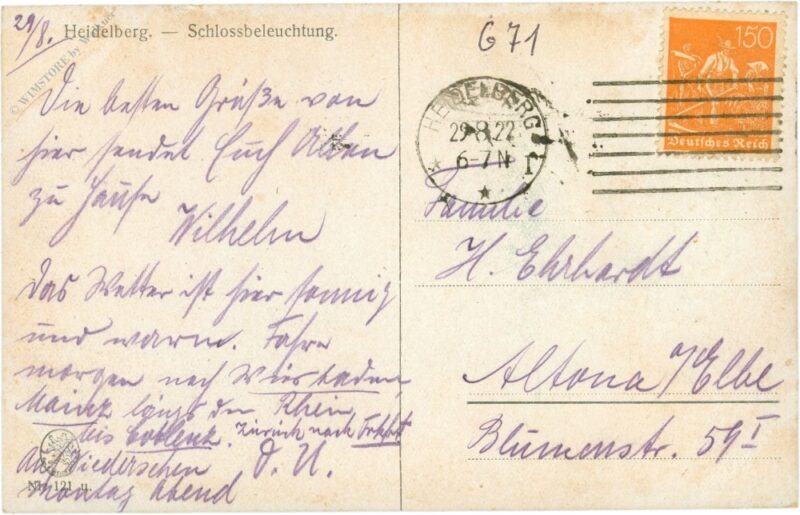 29/8.
Heidelberg. — Schlossbeleuchtung.
© WIMSTORE by W.
Die besten Grüße von
hier sendet Euch Allen
zu Hause
Wilhelm
Das Wetter ist hier sonnig
und warm. Fahre
morgen nach Wiesbaden,
Mainz längs den Rhein
bis Coblenz. Zurück nach
Auf Wiedersehen D. U.
Montag Abend
No. 121 u.
G 71
HEIDELBERG
29.8.22
6-7 N
150
Deutsches Reich
Familie
H. Ehrhardt
Altona a/Elbe
Blumenstr. 59 I